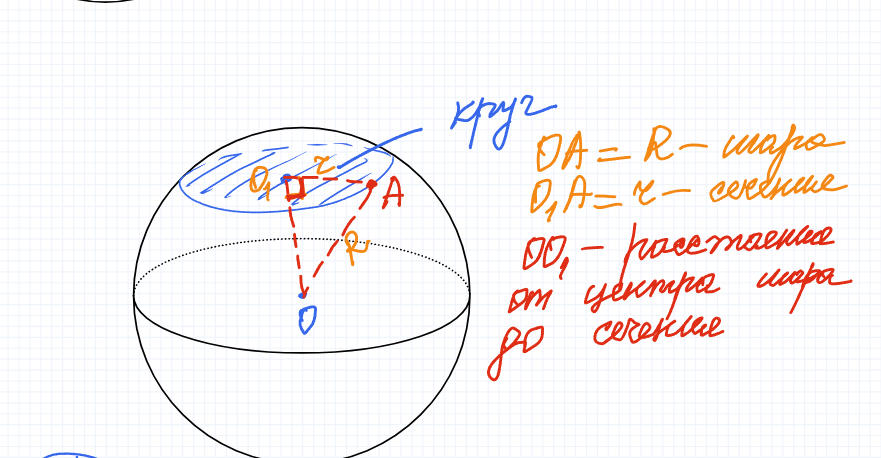 круг
OA = R - шара
O₁A = r - сечение
OO₁ - расстояние
от центра шара
до сечение
O₁ r A
R
O